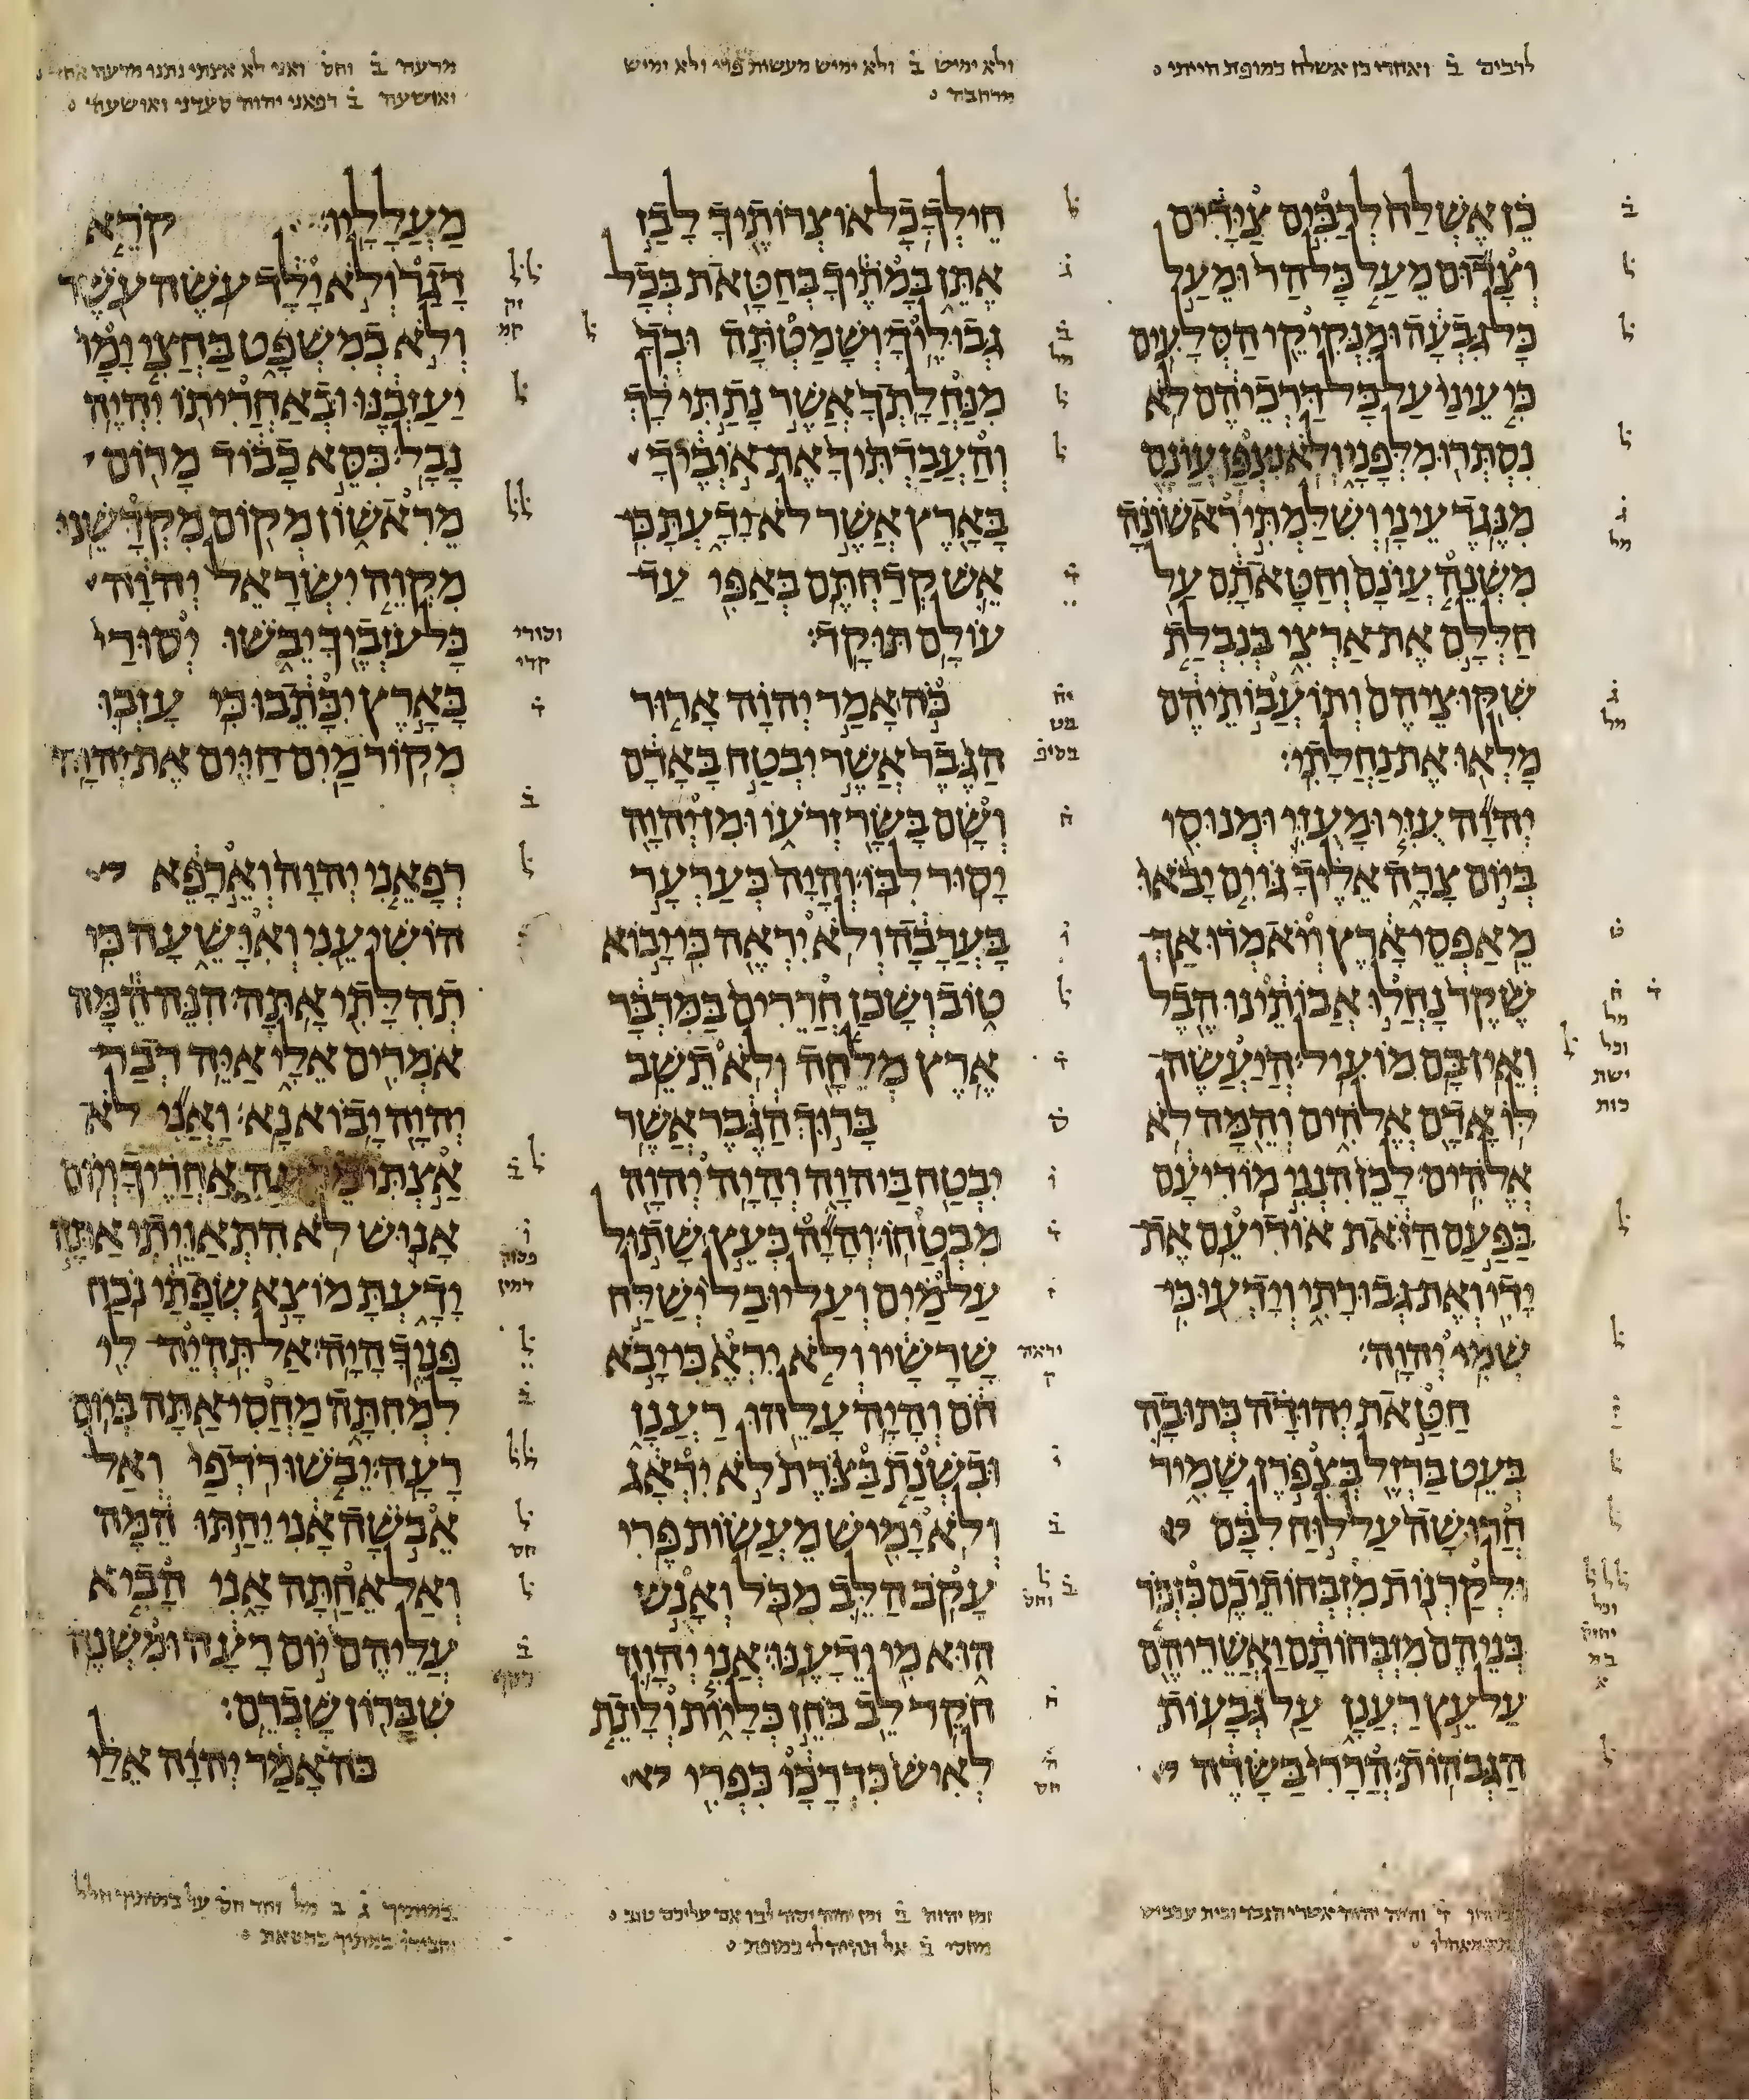 לרבים ב ואחרי כן אשלח כמופת הייתי
ולא ימיש ב ולא ימיש מעשות פרי ולא ימיש
מרחבה
מרעה ב וחס ואני לא אצתי נתנו מרעה אחד
ואושעה ב רפאני יהוה סעדני ואושעה
כן אשלח לרבים צידים
וצדום מעל כל הר ומעל
כל גבעה ומנקיקי הסלעים
כי עיני על כל דרכיהם לא
נסתרו מלפני ולא נצפן עונם
מנגד עיני ושלמתי ראשונה
משנה עונם וחטאתם על
חללם את ארצי בנבלת
שקוציהם ותועבותיהם
מלאו את נחלתי׃
יהוה עזי ומעזי ומנוסי
ביום צרה אליך גוים יבאו
מאפסי ארץ ויאמרו אך
שקר נחלו אבותינו הבל
ואין בם מועיל׃ היעשה
לו אדם אלהים והמה לא
אלהים׃ לכן הנני מודיעם
בפעם הזאת אודיעם את
ידי ואת גבורתי וידעו כי
שמי יהוה׃
חטאת יהודה כתובה
בעט ברזל בצפרן שמיר
חרושה על לוח לבם
ולקרנות מזבחותיכם׃ כזכר
בניהם מזבחותם ואשריהם
על עץ רענן על גבעות
הגבהות׃ הררי בשדה
חילך כל אוצרותיך לבז
אתן במתיך בחטאת בכל
גבוליך׃ ושמטתה ובך
מנחלתך אשר נתתי לך
והעבדתיך את איביך
בארץ אשר לא ידעת כי
אש קדחתם באפי עד
עולם תוקד׃
כה אמר יהוה ארור
הגבר אשר יבטח באדם
ושם בשר זרעו ומן יהוה
יסור לבו׃ והיה כערער
בערבה ולא יראה כי יבוא
טוב ושכן חררים במדבר
ארץ מלחה ולא תשב׃
ברוך הגבר אשר
יבטח ביהוה והיה יהוה
מבטחו׃ והיה כעץ שתול
על מים ועל יובל ישלח
שרשיו ולא ירא כי יבא
חם והיה עלהו רענן
ובשנת בצרת לא ידאג
ולא ימיש מעשות פרי׃
עקב הלב מכל ואנש
הוא מי ידענו׃ אני יהוה
חקר לב בחן כליות ולתת
לאיש כדרכו כפרי
מעלליו׃ קרא
דגר ולא ילד עשה עשר
ולא במשפט בחצי ימו
יעזבנו ובאחריתו יהיה
נבל׃ כסא כבוד מרום
מראשון מקום מקדשנו׃
מקוה ישראל יהוה
כל עזביך יבשו יסורי
בארץ יכתבו כי עזבו
מקור מים חיים את יהוה׃
רפאני יהוה וארפא
הושיעני ואושעה כי
תהלתי אתה׃ הנה המה
אמרים אלי איה דבר
יהוה יבוא נא׃ ואני לא
אצתי מרעה אחריך ויום
אנוש לא התאויתי אתה
ידעת מוצא שפתי נכח
פניך היה׃ אל תהיה לי
למחתה מחסי אתה ביום
רעה׃ יבשו רדפי ואל
אבשה אני יחתו המה
ואל אחתה אני הביא
עליהם יום רעה ומשנה
שברון שברם׃
כה אמר יהוה אלי
ומן יהוה ב ומן יהוה יסור לבו אם עליכם טוב
מחסי ב אל תהיה לי במופת